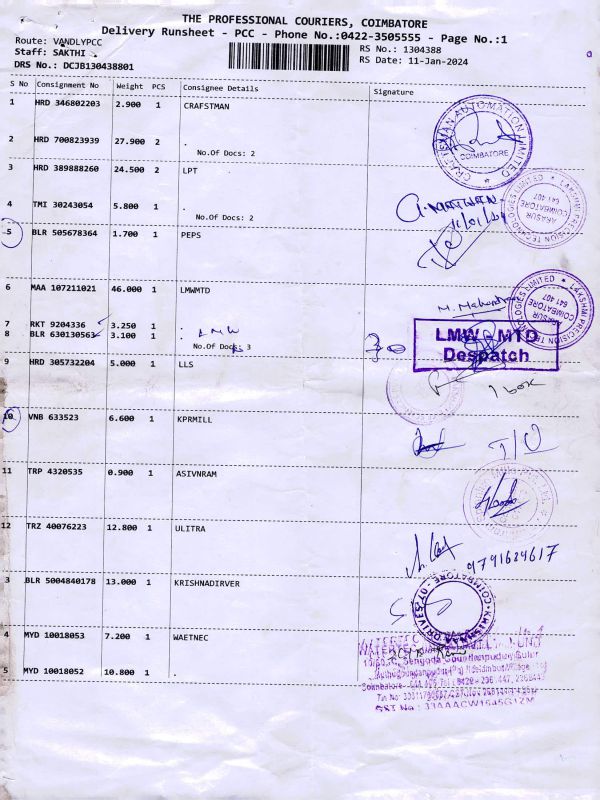 THE PROFESSIONAL COURIERS, COIMBATORE
Delivery Runsheet - PCC - Phone No.:0422-3505555 - Page No.:1
Route: VANDLYPCC
RS No.: 1304388
Staff: SAKTHI
RS Date: 11-Jan-2024
DRS No.: DCJB130438801
S No Consignment No Weight PCS Consignee Details Signature
1 HRD 346802203 2.900 1 CRAFSTMAN
CRAFTSMAN AUTOMATION LIMITED
COIMBATORE
2 HRD 700823939 27.900 2 .
No.Of Docs: 2
3 HRD 389888260 24.500 2 LPT
LAKSHMI PRECISION TECHNOLOGIES LIMITED
ARASUR
COIMBATORE
641 407
4 TMI 30243054 5.800 1 .
No.Of Docs: 2
5 BLR 505678364 1.700 1 PEPS
6 MAA 107211021 46.000 1 LMWMTD
LAKSHMI PRECISION TECHNOLOGIES LIMITED
ARASUR
COIMBATORE
641 407
7 RKT 9204336 3.250 1 .
8 BLR 630130563 3.100 1 . LMW
No.Of Docs: 3
LMW - MTD
Despatch
9 HRD 305732204 5.000 1 LLS
1 box
10 VNB 633523 6.600 1 KPRMILL
11 TRP 4320535 0.900 1 ASIVNRAM
12 TRZ 40076223 12.800 1 ULITRA
9791624617
3 BLR 5004840178 13.000 1 KRISHNADIRVER
4 MYD 10018053 7.200 1 WAETNEC
5 MYD 10018052 10.800 1 .
GST No : 33AAACW1645G1ZM